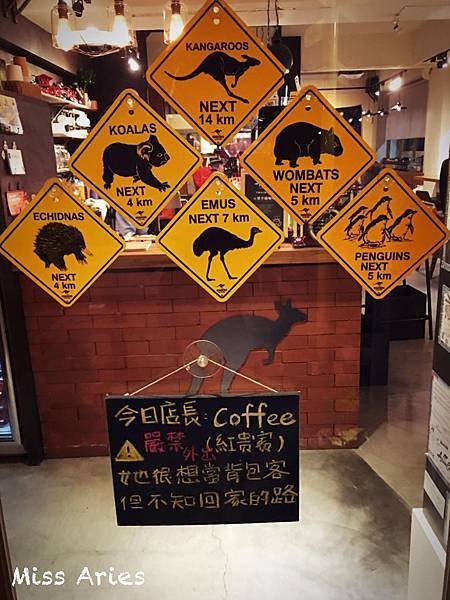 KANGAROOS
NEXT
14 km
KOALAS
NEXT
4 km
WOMBATS
NEXT
5 km
ECHIDNAS
NEXT
4 km
EMUS
NEXT 7 km
PENGUINS
NEXT
5 km
今日店長：Coffee
嚴禁外出(紅貴賓)
她很想當背包客
但不知回家的路
Miss Aries